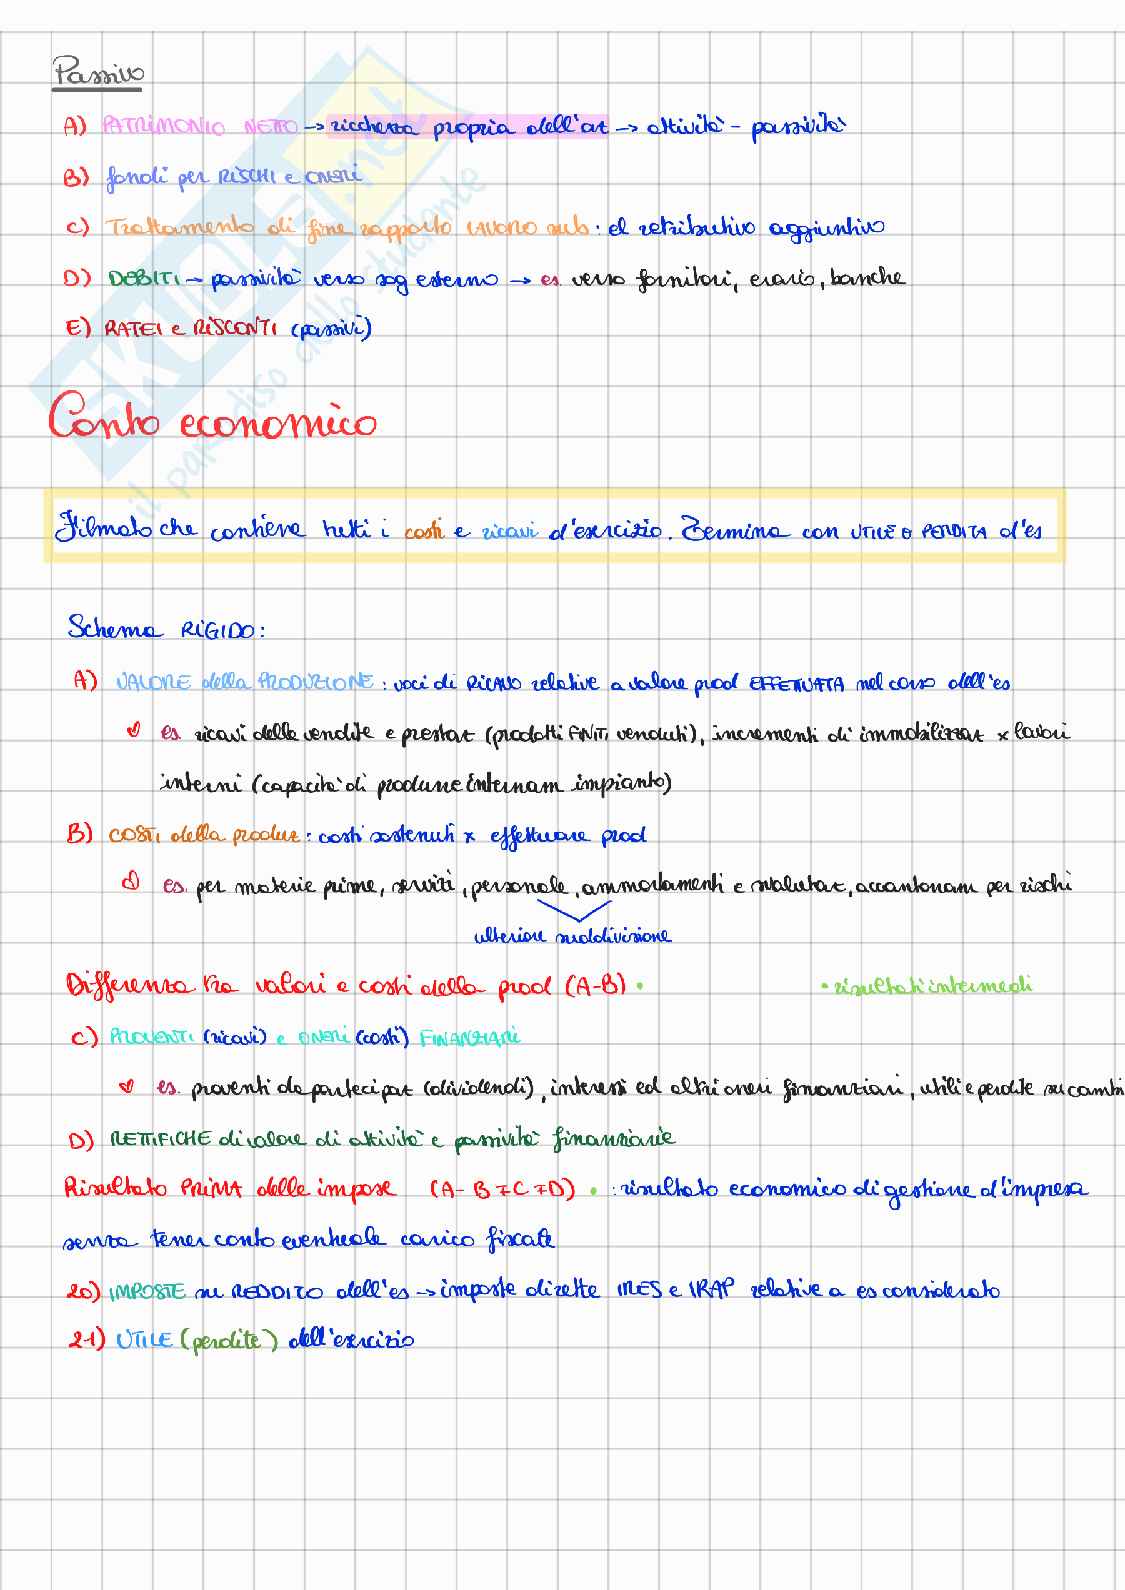 Passivo
A) PATRIMONIO NETTO → ricchezza propria dell'az → attività - passività
B) fondi per RISCHI e ONERI
C) Trattamento di fine rapporto LAVORO sub: el retributivo aggiuntivo
D) DEBITI → passività verso sog esterno → es. verso fornitori, erario, banche
E) RATEI e RISCONTI (passivi)
Conto economico
Filmato che contiene tutti i costi e ricavi d'esercizio. Termina con UTILE o PERDITA d'es
Schema RIGIDO:
A) VALORE della PRODUZIONE: voci di RICAVO relative a valore prod EFFETTUATA nel corso dell'es
es. ricavi delle vendite e prestaz (prodotti FINITI venduti), incrementi di immobilizzaz x lavori
interni (capacità di produrre internam impianto)
B) COSTI della produz: costi sostenuti x effettuare prod
es. per materie prime, servizi, personale, ammortamenti e svalutaz, accantonam per rischi
ulteriore suddivisione
Differenza tra valori e costi della prod (A-B) • • risultati intermedi
C) PROVENTI (ricavi) e ONERI (costi) FINANZIARI
es. proventi da partecipaz (dividendi), interessi ed altri oneri finanziari, utili e perdite su cambi
D) RETTIFICHE di valore di attività e passività finanziarie
Risultato PRIMA delle impose (A- B ∓C ∓D) • : risultato economico di gestione d'impresa
senza tener conto eventuale carico fiscale
20) IMPOSTE su REDDITO dell'es → imposte dirette IRES e IRAP relative a es considerato
21) UTILE (perdite) dell'esercizio
SKUOLA.net
il paradiso dello studente